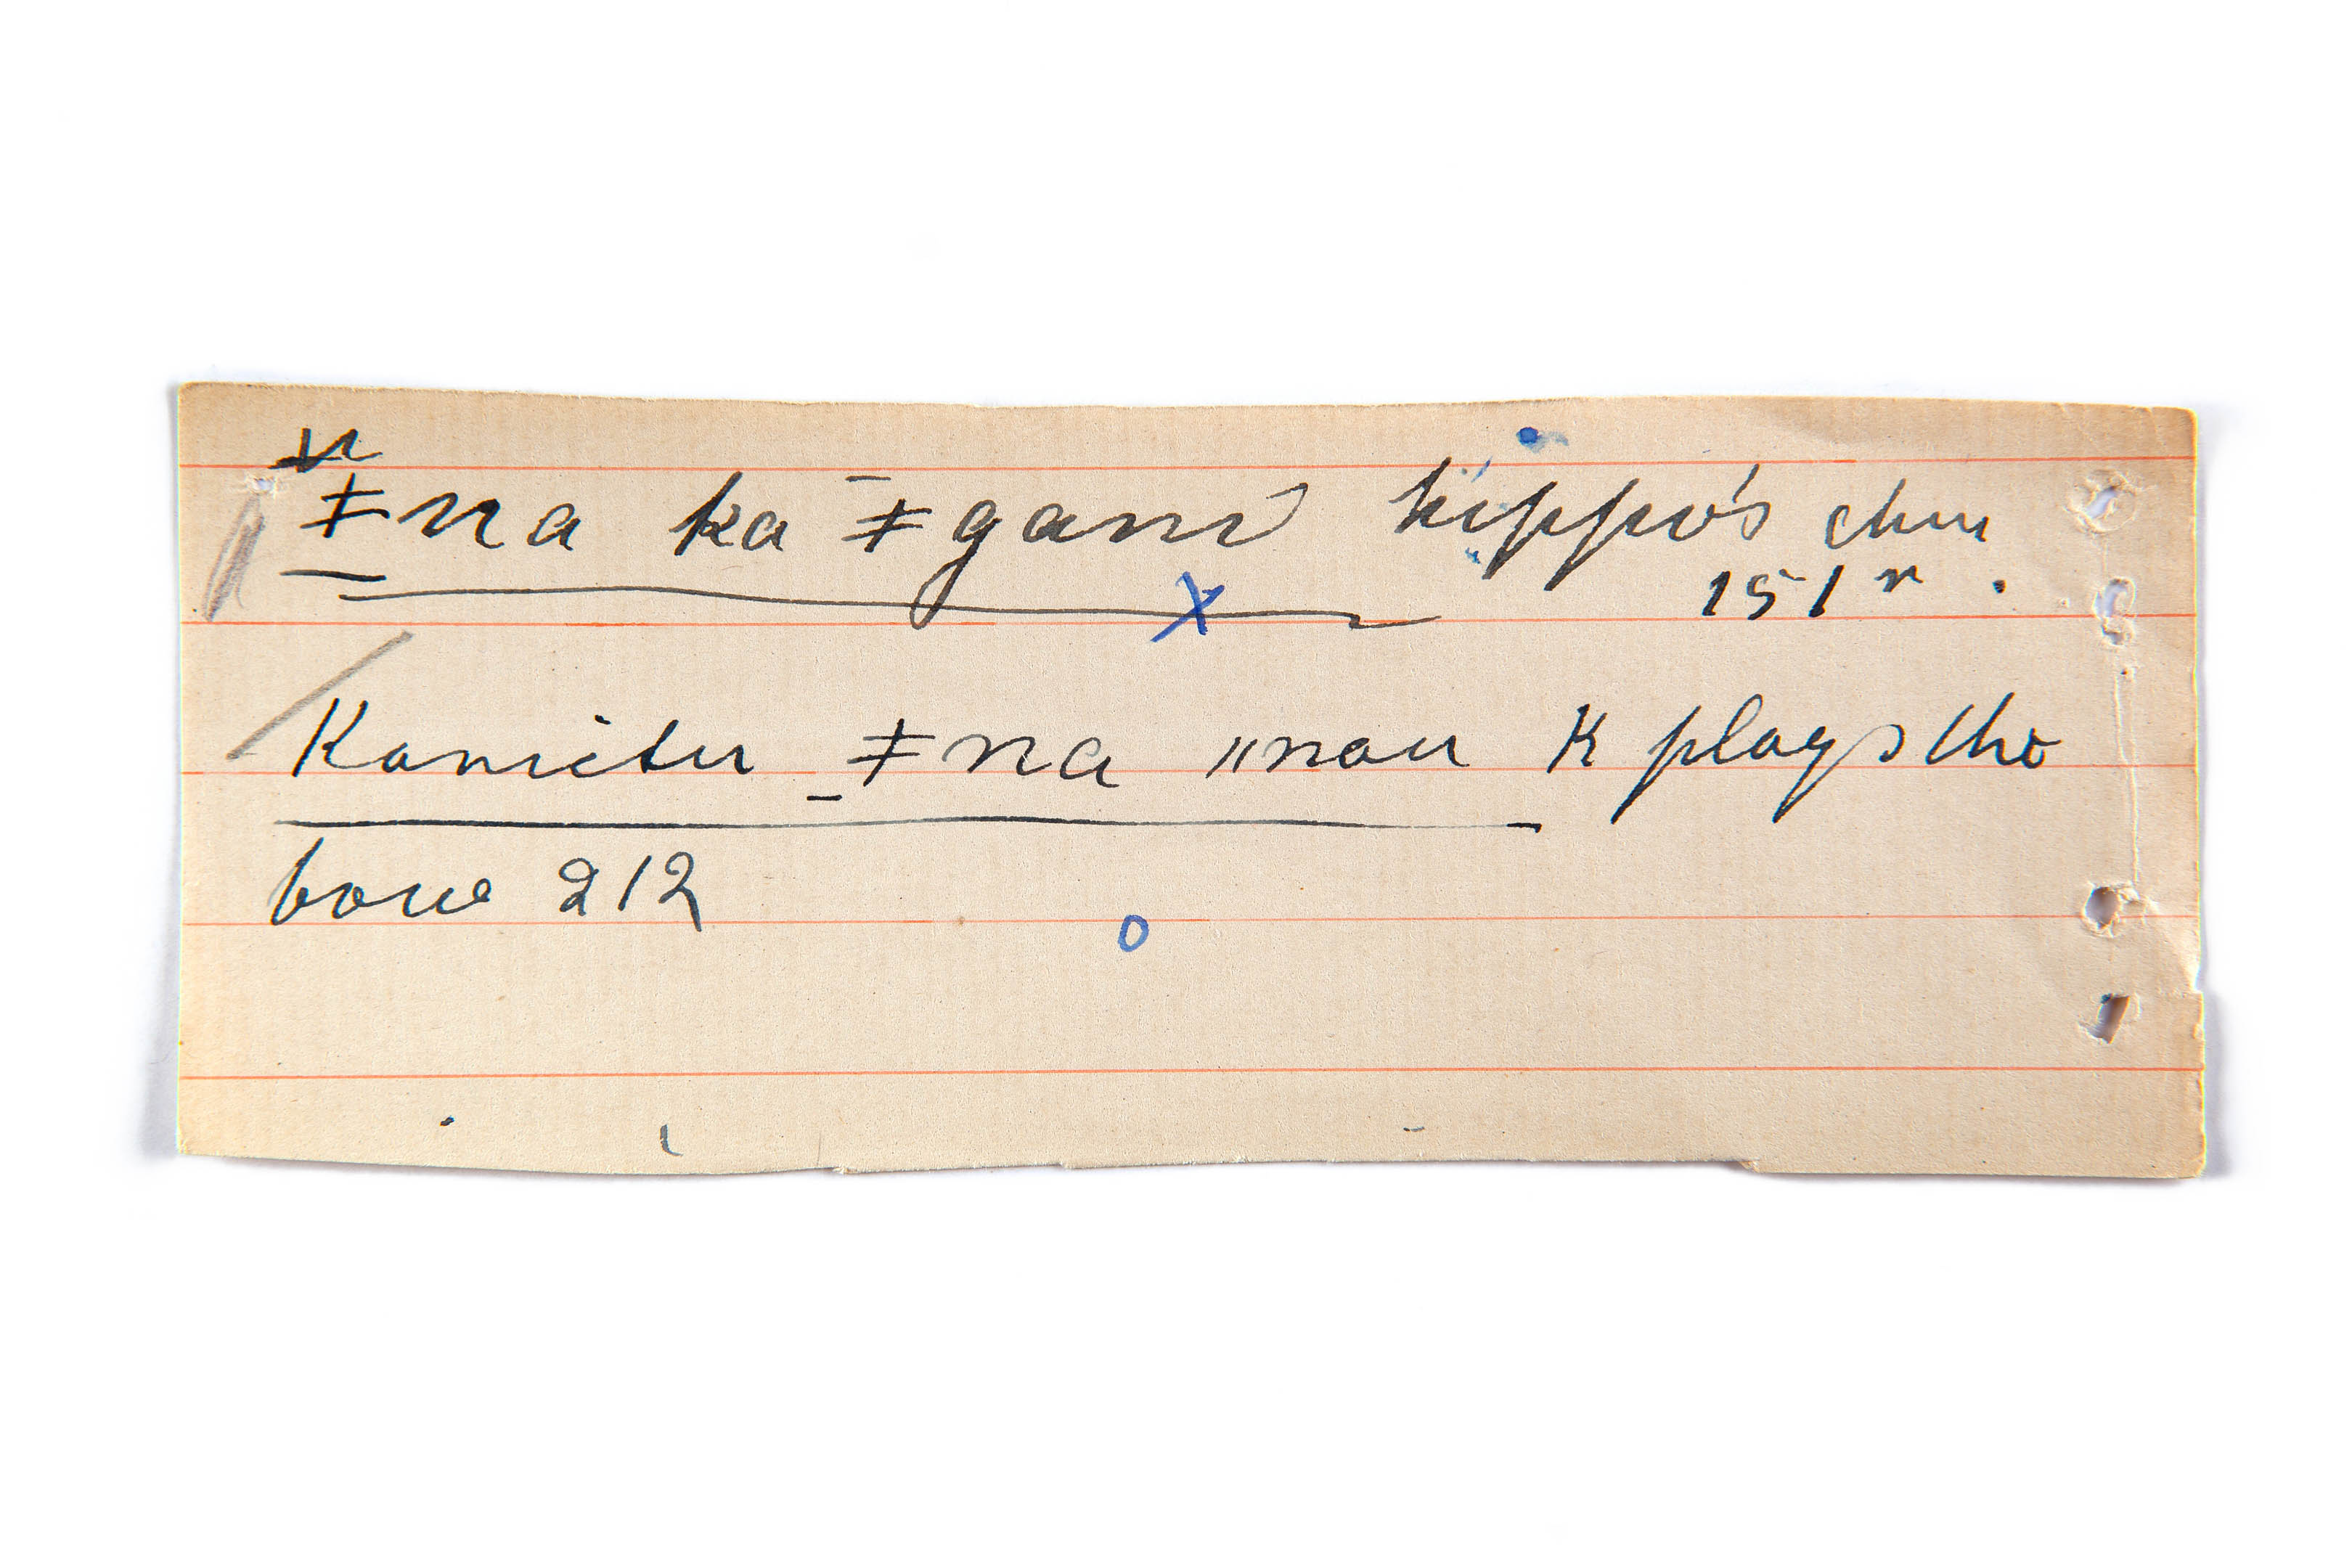 ǂna ka ǂgani hippo's chin
151 r.
Kamietu ǂna ǁnau K plays the
bow 212